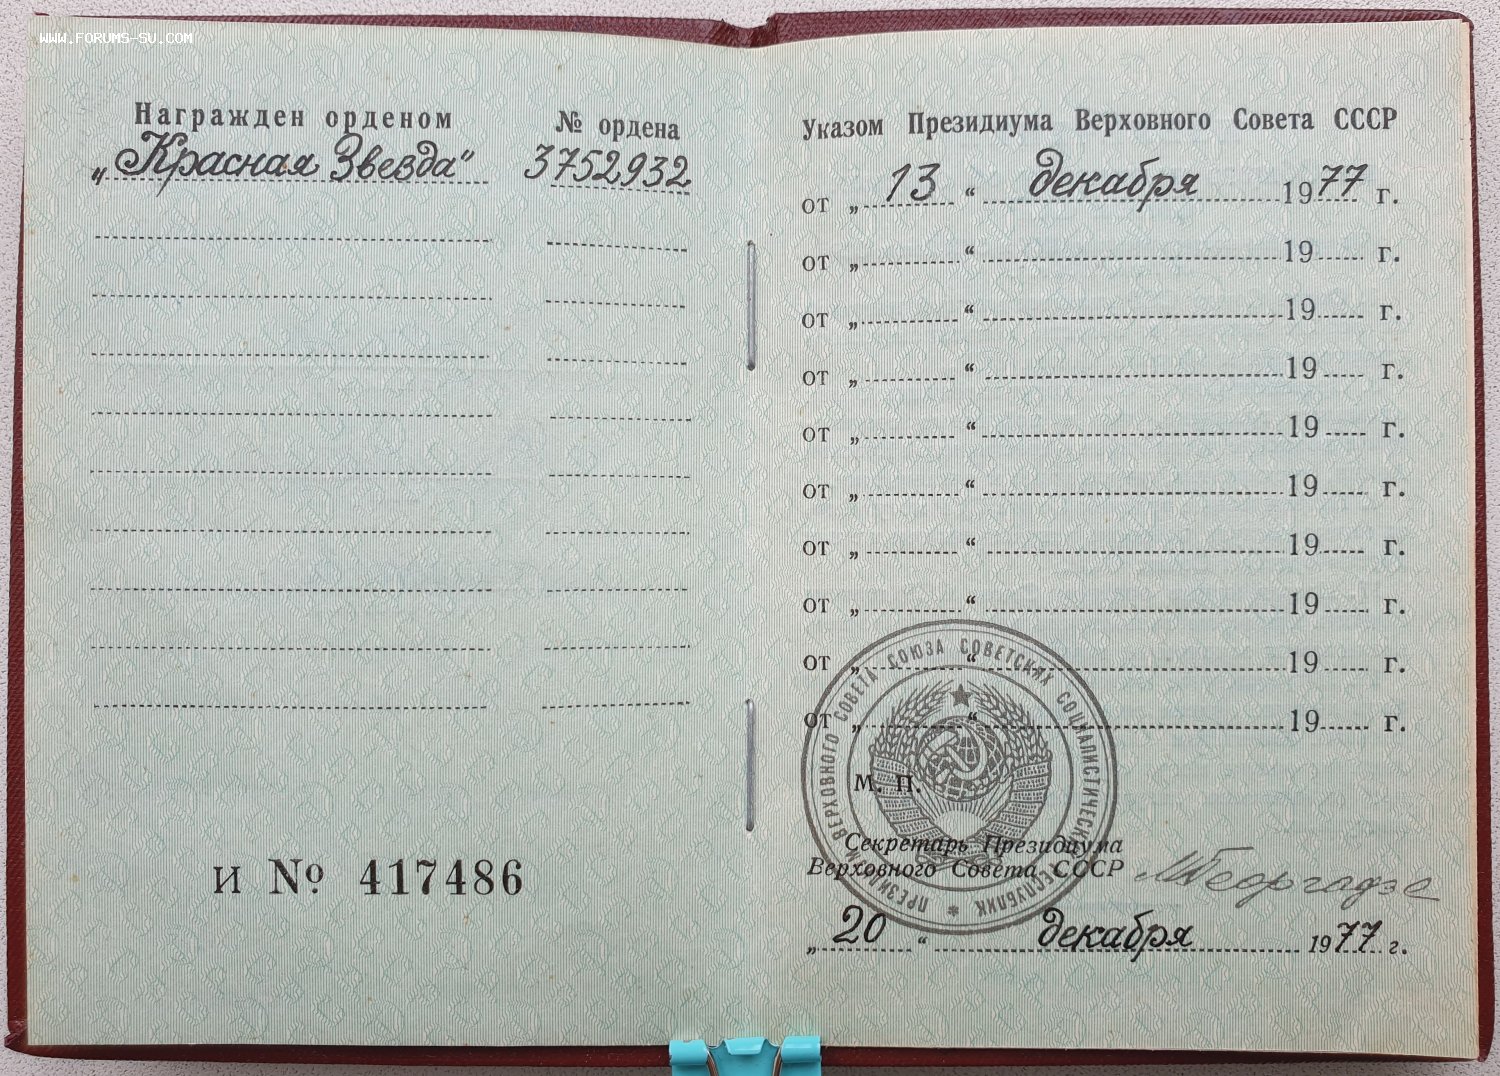 WWW.FORUMS-SU.COM
Награжден орденом
№ ордена
„Красная Звезда"
3752932
Указом Президиума Верховного Совета СССР
от „ 13 “ декабря 1977 г.
от „ “ 19 г.
от „ “ 19 г.
от „ “ 19 г.
от „ “ 19 г.
от „ “ 19 г.
от „ “ 19 г.
от „ “ 19 г.
от „ “ 19 г.
от „ “ 19 г.
ПРЕЗИДИУМ ВЕРХОВНОГО СОВЕТА СОЮЗА СОВЕТСКИХ СОЦИАЛИСТИЧЕСКИХ РЕСПУБЛИК
М. П.
Секретарь Президиума
Верховного Совета СССР
МГеоргадзе
„ 20 “ декабря 1977 г.
И № 417486